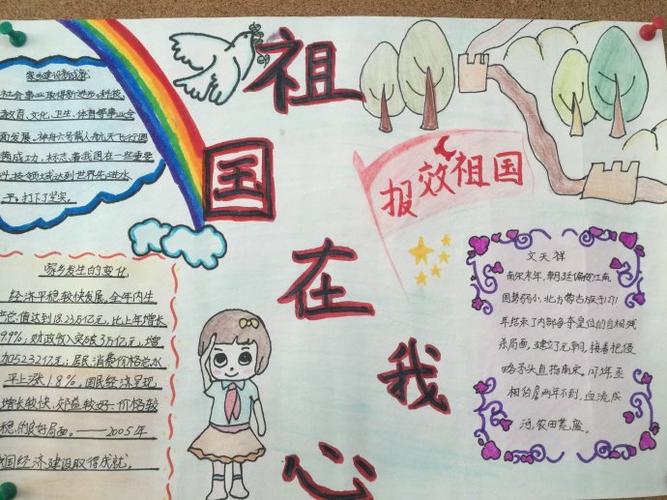 祖
国
在
我
心
报效祖国
社会事业取得新进步,科技、
教育、文化、卫生、体育等事业全
面发展。神舟六号载人航天飞行圆
满成功,标志着我国在一些重要
科技领域达到世界先进水
家乡发生的变化
经济平稳较快发展。全年国内生
产总值达到18.23万亿元,比上年增长
9.9%;财政收入突破3万亿元,增
加5232亿元;居民消费价格总水
平上涨1.8%,国民经济呈现
增长较快,效益较好,价格较
稳的良好局面。——2005年
我国经济建设取得成就。
文天祥
南宋末年,朝廷偏安江南,
国势弱小,北方蒙古族于1271
年结束了内部争夺皇位的自相残
杀局面,建立了元朝,接着把侵
略矛头直指南宋。
血流成
河,农田荒废。